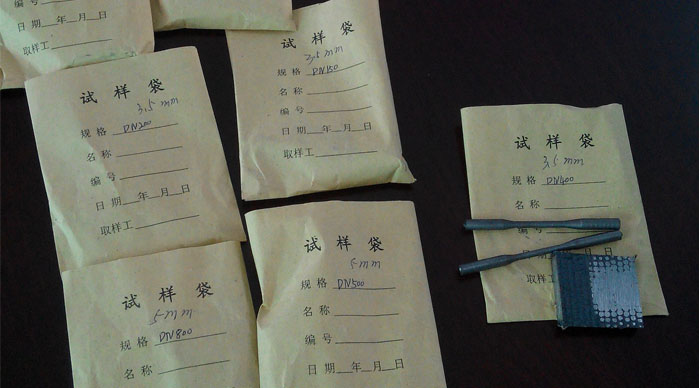 编 号
日 期 年 月 日
取样工
试 样 袋
3.5 mm
规 格 DN200
名 称
编 号
日 期 年 月 日
取样工
试 样 袋
3.5 mm
规 格 DN150
名 称
编 号
日 期 年 月 日
取样工
试 样 袋
3.5 mm
规 格 DN400
名 称
编 号
年 月 日
取样工
试 样 袋
5 mm
规 格 DN800
名 称
试 样 袋
5 mm
规 格 DN500
名 称
编 号
日 期 年 月 日